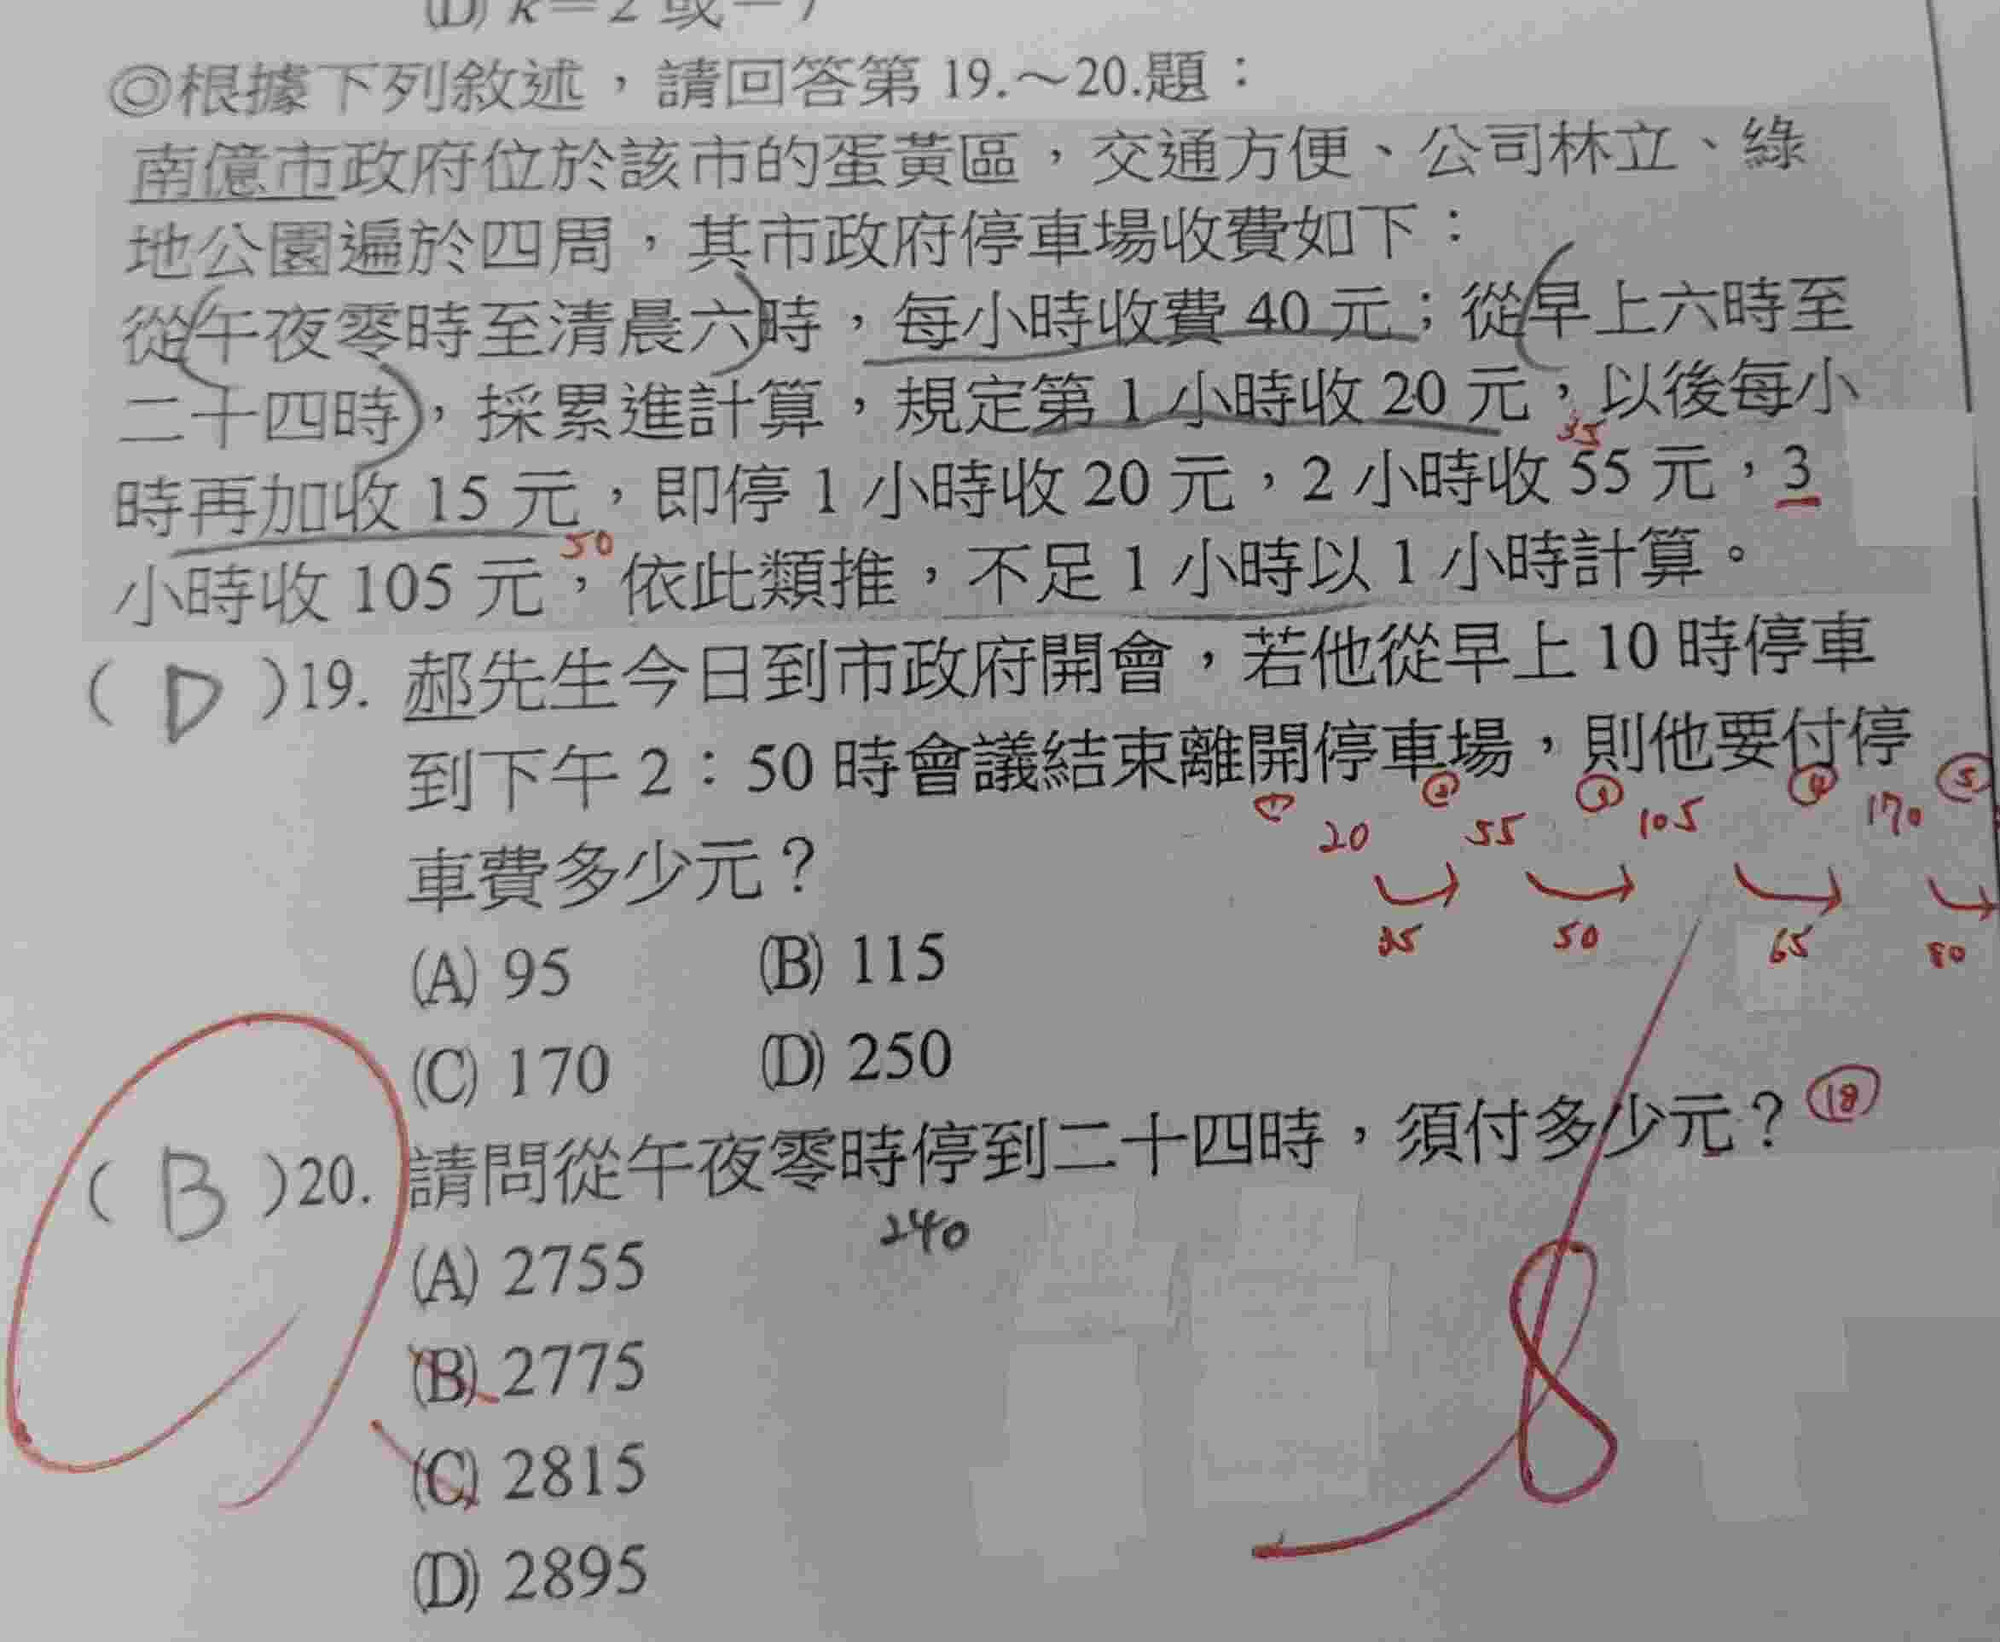 (D) k＝2 或－7
◎根據下列敘述，請回答第 19.～20.題：
南億市政府位於該市的蛋黃區，交通方便、公司林立、綠
地公園遍於四周，其市政府停車場收費如下：
從午夜零時至清晨六時，每小時收費 40 元；從早上六時至
二十四時，採累進計算，規定第 1 小時收 20 元，以後每小
35
時再加收 15 元，即停 1 小時收 20 元，2 小時收 55 元，3
50
小時收 105 元，依此類推，不足 1 小時以 1 小時計算。
( D )19. 郝先生今日到市政府開會，若他從早上 10 時停車
到下午 2：50 時會議結束離開停車場，則他要付停
① ② ③ ④ ⑤
20 55 105 170
車費多少元？
35 50 65 80
(A) 95 (B) 115
(C) 170 (D) 250
( B )20. 請問從午夜零時停到二十四時，須付多少元？ ⑱
240
(A) 2755
(B) 2775
(C) 2815
(D) 2895
8